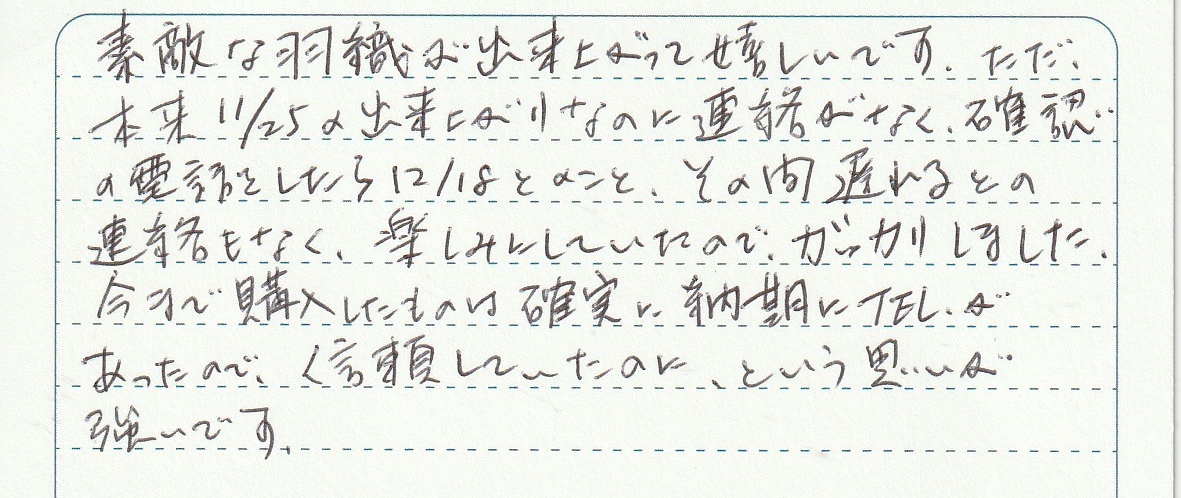 素敵な羽織が出来上がって嬉しいです。ただ、
本来11/25の出来上がりなのに連絡がなく、確認
の電話をしたら12/18とのこと、その間遅れるとの
連絡もなく、楽しみにしていたので、ガッカリしました。
今まで購入したものは確実に納期にTEL.が
あったので、信頼していたのに、という思いが
強いです。